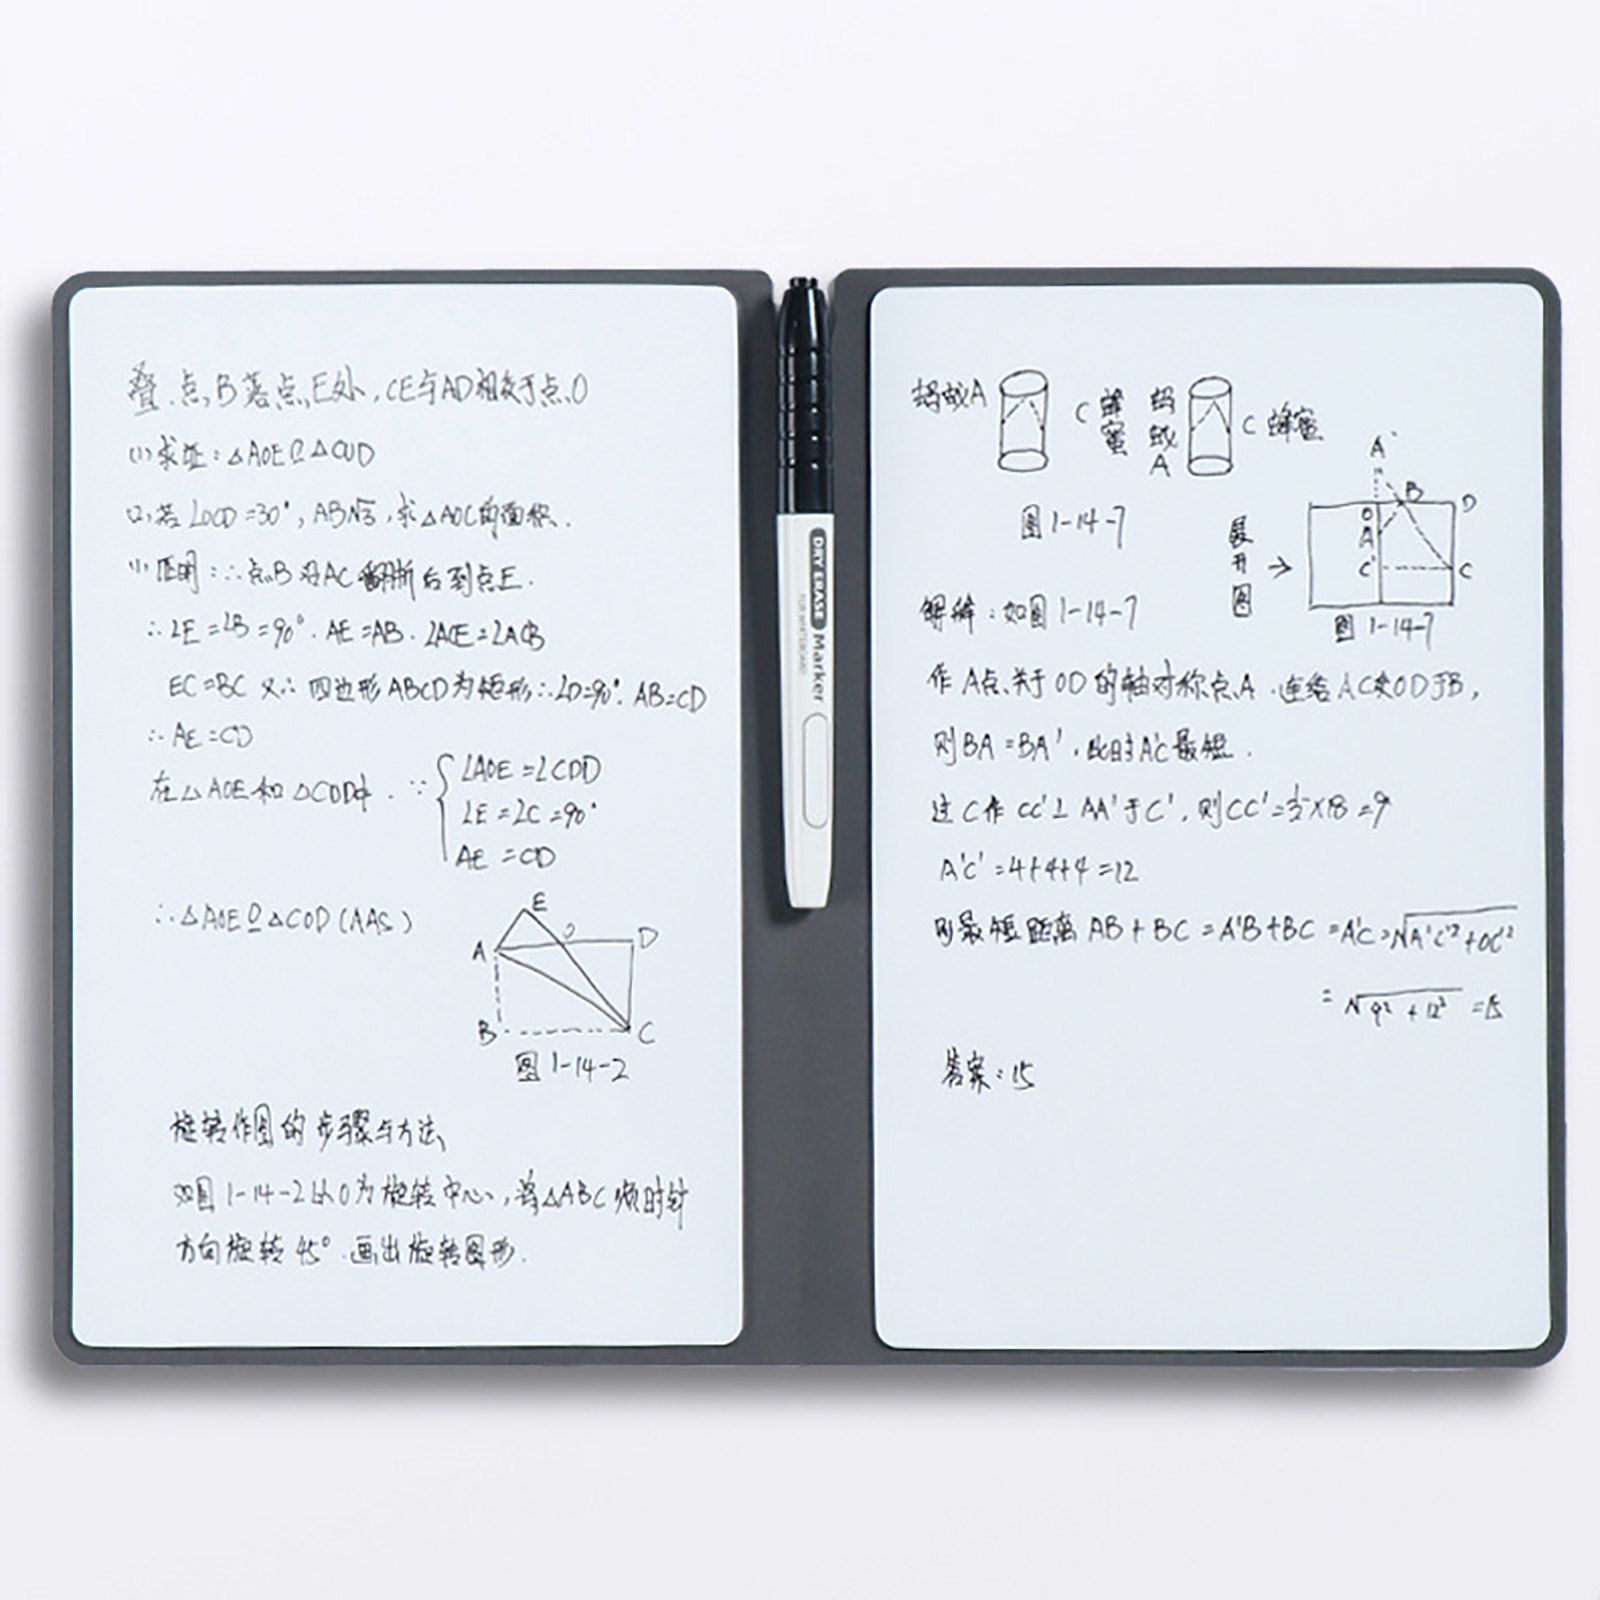 叠.点B落点E处,CE与AD相交于点O
(1)求证:△AOE≌△COD
(2)若∠OCD=30°,AB=√3,求△AOC的面积.
(1)证明:∵点B沿AC翻折后到点E.
∴∠E=∠B=90°.AE=AB.∠ACE=∠ACB
EC=BC 又∵四边形ABCD为矩形∴∠D=90°.AB=CD
∴AE=CD
在△AOE和△COD中.∵
∠AOE=∠COD
∠E=∠C=90°
AE=CD
∴△AOE≌△COD(AAS)
E
A O D
B C
图1-14-2
旋转作图的步骤与方法
如图1-14-2以O为旋转中心,将△ABC顺时针
方向旋转45°.画出旋转图形.
DRY ERASE Marker
FOR WHITEBOARD
蚂蚁A C蜂蜜 蚂蚁A C蜂蜜
图1-14-7
展开图→
A'
B D
O
A
C' C
图1-14-7
解释:如图1-14-7
作A点关于OD的轴对称点A.连结AC交OD于B,
则BA=BA',此时A'C最短.
过C作CC'⊥AA'于C',则CC'=½×18=9
A'C'=4+4+4=12
则最短距离AB+BC=A'B+BC=A'C=√A'C'²+CC'²
=√9²+12²=15
答案:15